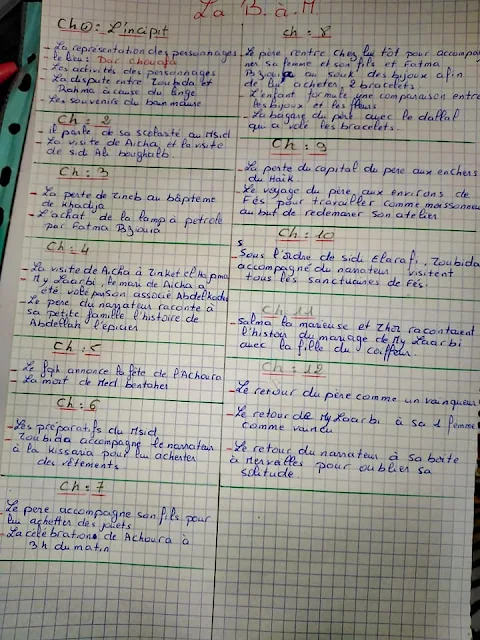 La B. à M.
Ch ①: L'incipit
- La représentation des personnages
le lieu: Dar chouafa
- Les activités des personnages
- La dispute entre Zoubida et
Rahma à cause du linge
- Les souvenirs du bain maure
Ch: 2
- il parle de sa scolarité au Msid
- La visite de Aicha et la visite
de sidi Ali boughalb.
Ch: 3
- La perte de Zineb au bâptème
de Khadja
- L'achat de la lamp à petrole
par Fatma Bziouia
Ch: 4
- La visite de Aicha à
My Laarbi, le mari de Aicha a
été volé par son associé Abdelkader
- Le pere du narrateur raconte à
sa petite famille l'histoire de
Abdellah l'épicier
Ch: 5
- Le fqh annonce la fête de l'Achoura
- La mort de Med bentaher
Ch: 6
- Les préparatifs du Msid
- Zoubida accompagne le narrateur
à la kissaria pour lui achester
des vêtements.
Ch: 7
- Le pere accompagne son fils pour
lui achetter des jouets
- La célébration de Achoura à
3h du matin
ch: 8
- Le père rentre chez lui tôt pour accompa
ner sa femme et son fils et Fatma
Bziouia au souk des bijoux afin
de lui acheter 2 bracelets.
- L'enfant formule une comparaison entre
les bijoux et les fleurs
- La bagare du père avec le dallal
qui a volé les bracelets.
Ch: 9
- La perte du capital du père aux enchers
du Haïk.
- Le voyage du père aux environs de
Fés pour travailler comme moissonneur
au but de redemarer son atelier
Ch: 10
s
- Sous l'ordre de sidi Elarafi, Zoubida
accompagné du narrateur visitent
tous les sanctuaires de Fés.
Ch: 11
- salma la marieuse et Zhor racontaient
l'histoir du mariage de My Laarbi
avec la fille du coiffeur.
Ch: 12
- Le retour du père comme un vainqueur
- Le retour de My Laarbi à sa 1 femme
comme vaincu
- Le retour du narrateur à sa boite
à Merveilles pour oublier sa
solitude.